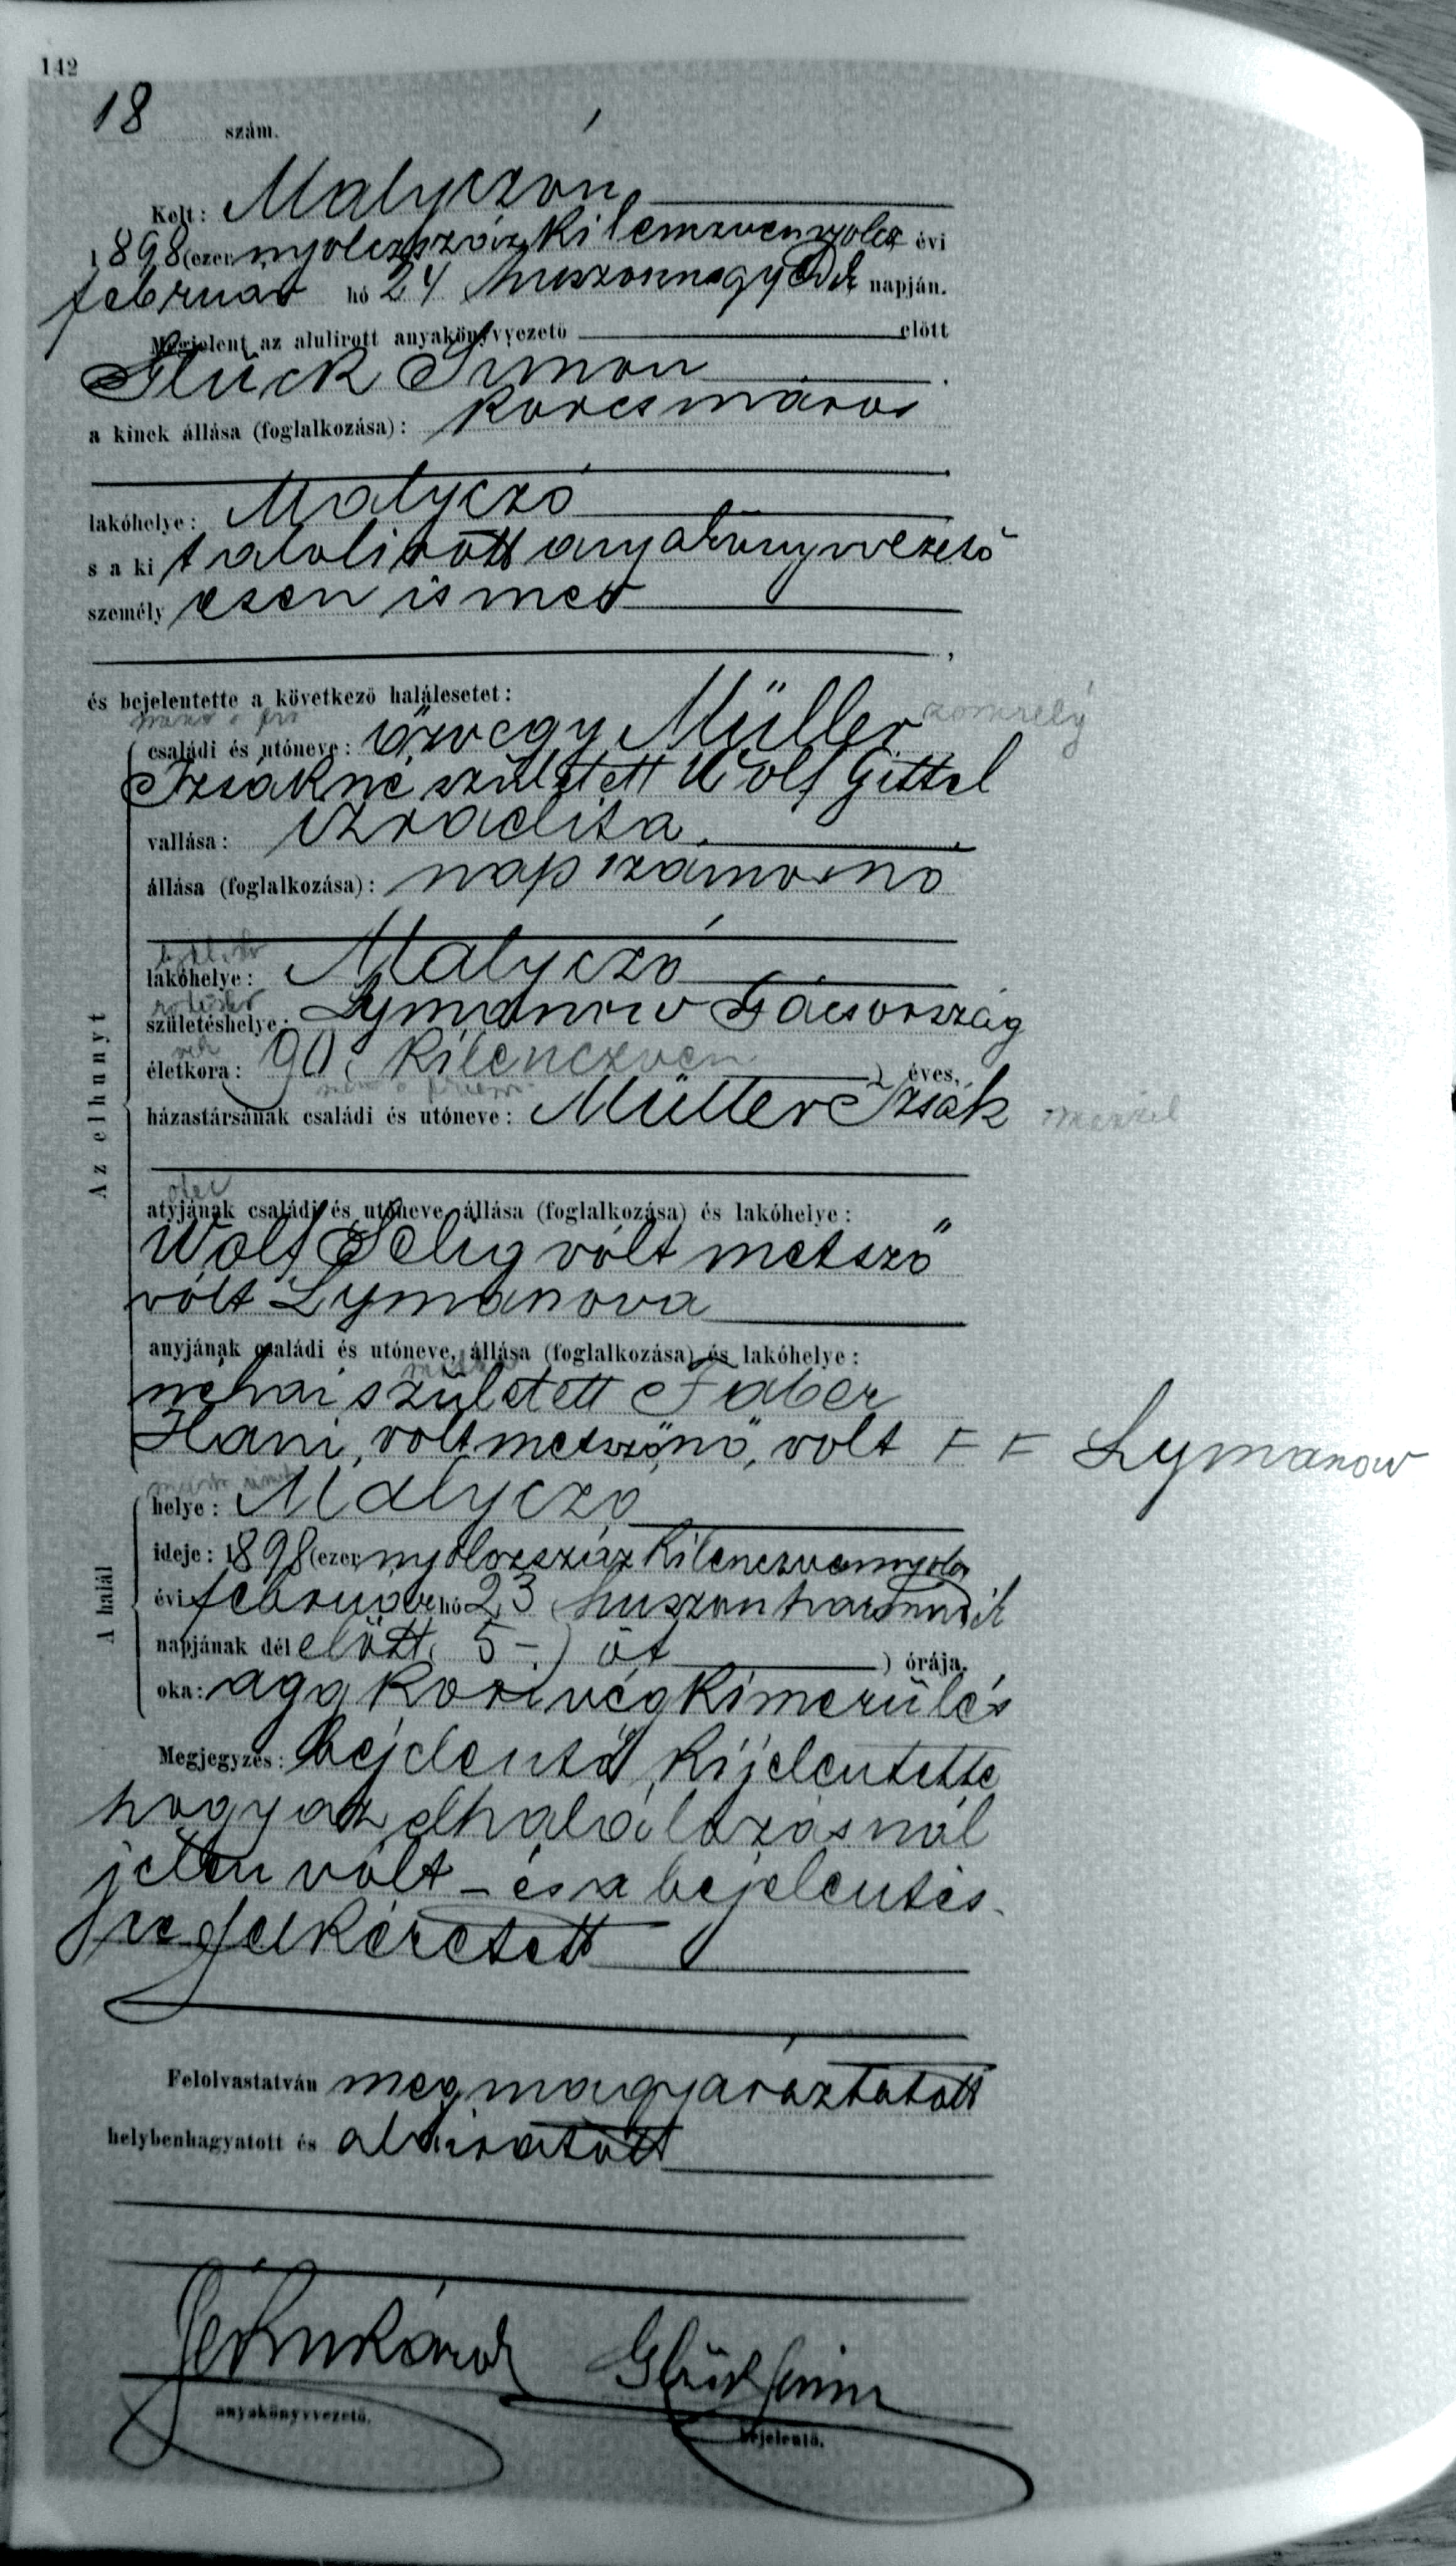 142
18 szám.
Kelt: Malyczón,
1898 (ezer nyolczszáz kilenczvennyolcz évi
február hó 24 huszonnegyedik napján.
Megjelent az alulirott anyakönyvvezető előtt
Glück Simon
a kinek állása (foglalkozása): korcsmáros
lakóhelye: Malyczó
s a ki t alolirott anyakönyvvezető
személy esen ismer
és bejelentette a következő halálesetet:
családi és utóneve: özvegy Müller
Izsákné született Wolf Gittel
vallása: izraelita
állása (foglalkozása): napszámosnő
lakóhelye: Malyczó
születéshelye: Lymanow Gácsország
életkora: 90 (kilenczven ) éves,
házastársának családi és utóneve: Müller Izsák
Az elhunyt
atyjának családi és utóneve, állása (foglalkozása) és lakóhelye:
Wolf Selig vólt metsző
vólt Lymanova
anyjának családi és utóneve, állása (foglalkozása) és lakóhelye:
néhai született Faber
Hani, volt metszőnő, volt F F Lymanow
A halál
helye: Malyczó
ideje: 1898 (ezer nyolczszáz kilenczvennyolcz
évi február hó 23 huszonharmadik
napjának dél előtt 5 - ) öt ) órája.
oka: agg kori végkimerülés
Megjegyzés: bejelentő kijelentette
hogy az elhalálozásnál
jelen vólt - és a bejelentés
re felkéretett
Felolvastatván megmagyaráztatott
helybenhagyatott és aláiratott
Glück Simon
anyakönyvvezető.
bejelentő.